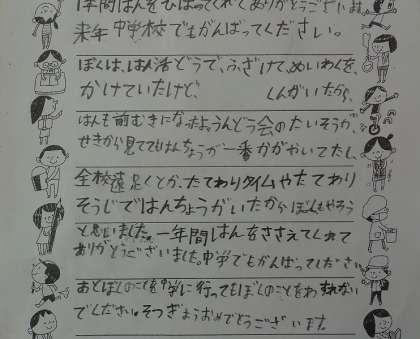 年間はんをひっぱってくれてありがとうございます。
来年中学校でもがんばってください。
ぼくは、はん活どうで、ふざけて、めいわくを、
かけていたけど、 しんがいたから、
はんも前むきになったよ。うんどう会のたいそうが、
せきから見ててはんちょうが一番かがやいてたし、
全校遠足とか、たてわりタイムやたてわり
そうじではんちょうがいたからぼくもやろう
と思いました。一年間はんをささえてくれて
ありがとうございました。中学でもがんばってください
あとぼくのことを中学に行ってもぼくのことをわすれない
でください。そつぎょうおめでとうございます。